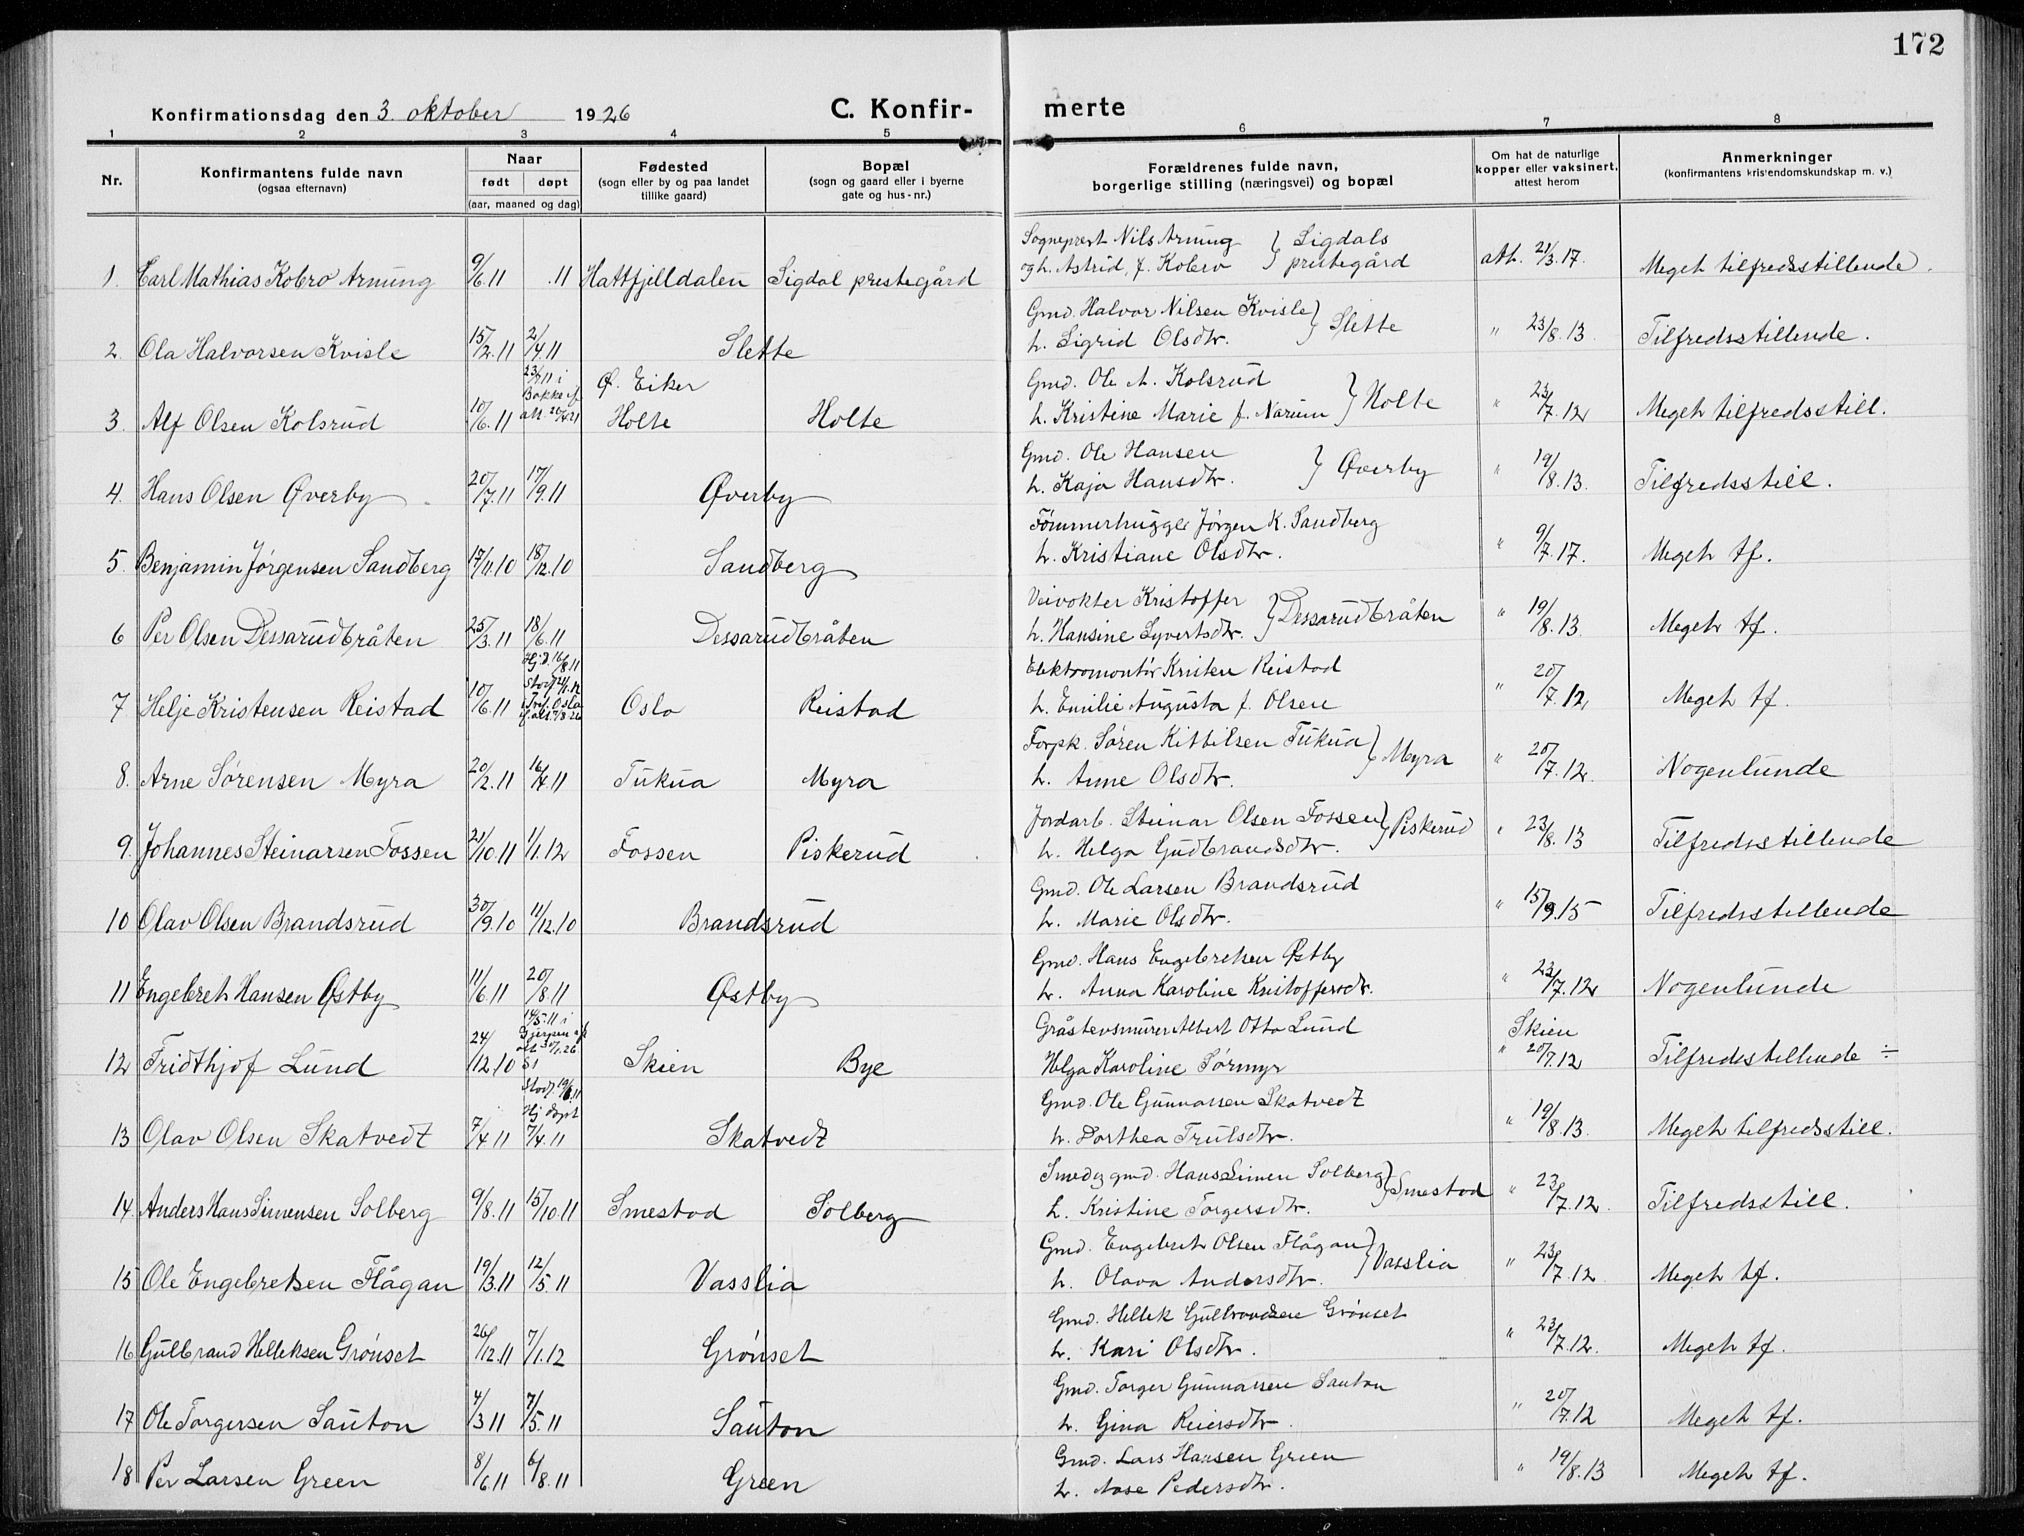 172
Konfirmationsdag den 3. oktober 1926 C. Konfir- merte
1 2 3 4 5 6 7 8
Nr. Konfirmantens fulde navn (ogsaa efternavn) Naar født døpt (aar, maaned og dag) Fødested (sogn eller by og paa landet tillike gaard) Bopæl (sogn og gaard eller i byerne gate og hus-nr.) Forældrenes fulde navn, borgerlige stilling (næringsvei) og bopæl Om hat de naturlige kopper eller vaksinert, attest herom Anmerkninger (konfirmantens kristendomskundskap m. v.)
Sogneprest Nils Arnung } Sigdals
1. Carl Mathias Kobro Arnung 9/6.11 .11 Hattfjelldalen Sigdal prestegård og h. Astrid, f. Kobro } prestegård att. 21/3.17. Meget tilfredsstillende.
Gmd. Halvor Nilsen Kvisle
2. Ola Halvorsen Kvisle 15/2.11 2/4.11 Slette h. Sigrid Olsdtr. } Slette " 23/8.13. Tilfredsstillende.
23/7.11 i Bakke if. att. 20/4.21 Ø. Eiker Gmd. Ole A. Kolsrud
3. Alf Olsen Kolsrud 10/6.11 Holte Holte h. Kristine Marie f. Narum } Holte " 23/7.12 Meget tilfredsstill.
Gmd. Ole Hansen
4. Hans Olsen Øverby 20/7.11 17/9.11 Øverby h. Kaja Hansdtr. } Øverby " 19/8.13. Tilfredsstill.
Tømmerhugger Jørgen K. Sandberg
5. Benjamin Jørgensen Sandberg 17/11.10 18/12.10 Sandberg h. Kristiane Olsdtr. " 9/7.17. Meget tf.
Veivokter Kristoffer
6 Per Olsen Dessarudbråten 25/3.11 18/6.11 Dessarudbråten h. Hansine Syvertsdtr. } Dessarudbråten " 19/8.13. Meget tf.
Hj.d. 16/8.11 Elektromontør Kristen Reistad
7 Helje Kristensen Reistad 10/6.11 Oslo Reistad h. Emilie Augusta f. Olsen " 20/7.12, Meget tf.
Forpk. Søren Kittilsen Tukua
8. Arne Sørensen Myra 20/2.11 16/4.11 Tukua Myra h. Anne Olsdtr. } Myra " 20/7.12. Nogenlunde
Jordarb. Steinar Olsen Fossen
9. Johannes Steinarsen Fossen 21/10.11 1/1.12 Fossen Piskerud h. Helga Gudbrandsdtr. } Piskerud " 23/8.13 Tilfredsstillende
Gmd. Ole Larsen Brandsrud
10 Olav Olsen Brandsrud 30/9.10 11/12.10 Brandsrud h. Marie Olsdtr. " 15/9.15 Tilfredsstillende
Gmd. Hans Engebretsen Østby
11 Engebret Hansen Østby 11/6.11 20/8.11 Østby h. Anna Karoline Kristoffersdtr. " 23/7.12 Nogenlunde
14/5.11 i Gjerpen if. att. 30/1.26 Gråstensmurer Albert Otto Lund Skien
12 Fridthjof Lund 24/12.10 Skien Bye Helga Karoline Sørmyr " 20/7.12 Tilfredsstillende ÷
Hj døpt Gmd. Ole Gunnarsen Skatvedt
13 Olav Olsen Skatvedt 7/4.11 7/4.11 Skatvedt h. Dorthea Trulsdtr. " 19/8.13. Meget tilfredsstill.
Smed og gmd. Hans Simen Solberg
14 Anders Hans Simensen Solberg 9/8.11 15/10.11 Smestad Solberg h. Kristine Torgersdtr. } Smestad " 23/7.12. Tilfredsstill.
Gmd. Engebret Olsen Flågan
15 Ole Engebretsen Flågan 19/3.11 12/5.11 Vasslia h. Olava Andersdtr. } Vasslia " 23/7.12. Meget tf.
Gmd. Hellek Gulbrandsen Grønset
16 Gulbrand Helleksen Grønset 26/12.11 7/1.12 Grønset h. Kari Olsdtr. " 23/7.12. Meget tf.
Gmd. Torger Gunnarsen Sauton
17 Ole Torgersen Sauton 4/3.11 7/5.11 Sauton h. Gina Reiersdtr. " 20/7.12 Meget tf.
Gmd. Lars Hansen Green
18 Per Larsen Green 8/6.11 6/8.11 Green h. Aase Pedersdtr. " 19/8.13 Meget tf.